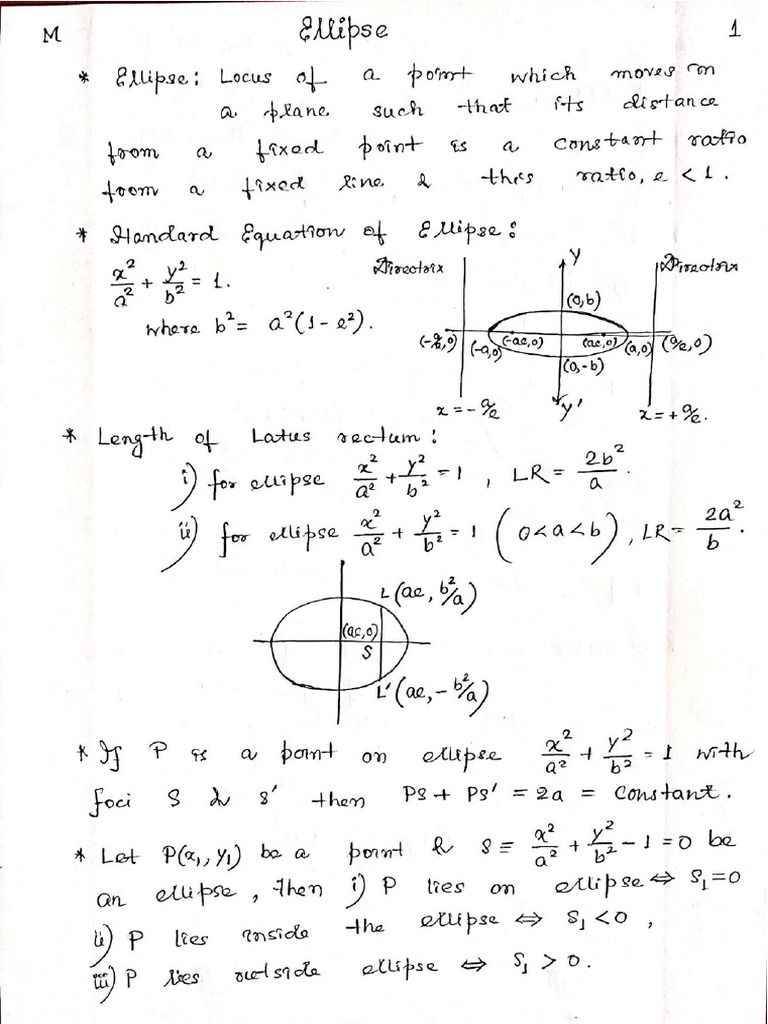 M Ellipse 1
* Ellipse: Locus of a point which moves in
a plane such that its distance
from a fixed point is a constant ratio
from a fixed line & this ratio, e < 1.
* Standard Equation of Ellipse:
x²/a² + y²/b² = 1.
where b² = a²(1 - e²).
Directrix Y Directrix
(0,b)
(-a/e,0) (-a,0) (-ae,0) (ae,0) (a,0) (a/e,0)
(0,-b)
x = -a/e Y' x = +a/e.
* Length of Latus rectum:
i) for ellipse x²/a² + y²/b² = 1, LR = 2b²/a.
ii) for ellipse x²/a² + y²/b² = 1 (0<a<b), LR = 2a²/b.
L(ae, b²/a)
(ae,0)
S
L'(ae, -b²/a)
* If P is a point on ellipse x²/a² + y²/b² = 1 with
foci S & S' then PS + PS' = 2a = constant.
* Let P(x₁,y₁) be a point & S ≡ x²/a² + y²/b² - 1 = 0 be
an ellipse, then i) P lies on ellipse ⇔ S₁=0
ii) P lies inside the ellipse ⇔ S₁<0,
iii) P lies outside ellipse ⇔ S₁ > 0.